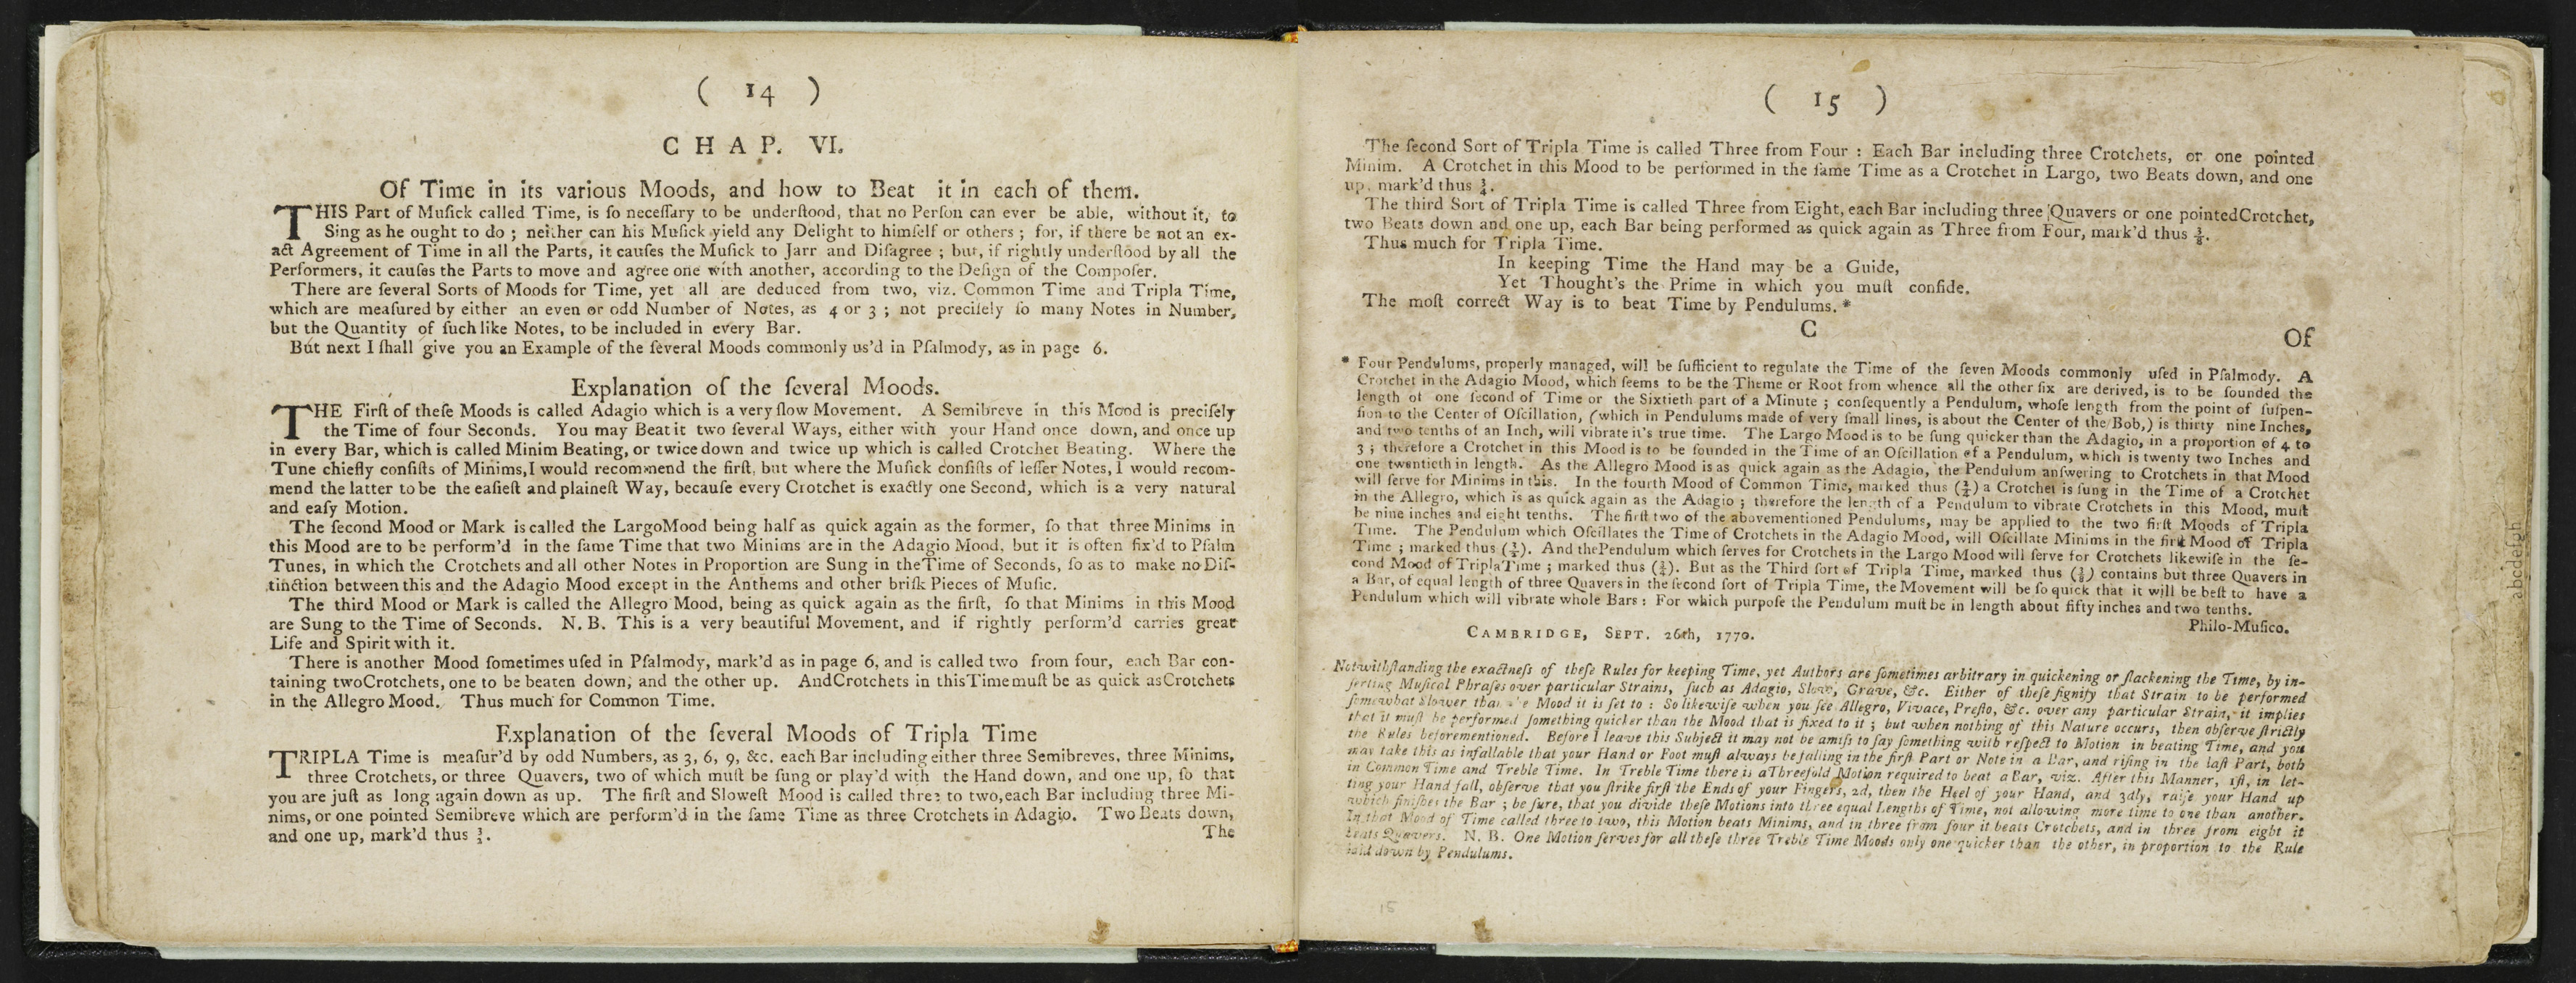 ( 14 )
CHAP. VI.
Of Time in its various Moods, and how to Beat it in each of them.
THIS Part of Muſick called Time, is ſo neceſſary to be underſtood, that no Perſon can ever be able, without it, to
Sing as he ought to do ; neither can his Muſick yield any Delight to himſelf or others ; for, if there be not an ex-
act Agreement of Time in all the Parts, it cauſes the Muſick to Jarr and Diſagree ; but, if rightly underſtood by all the
Performers, it cauſes the Parts to move and agree one with another, according to the Deſign of the Compoſer.
There are ſeveral Sorts of Moods for Time, yet all are deduced from two, viz. Common Time and Tripla Time,
which are meaſured by either an even or odd Number of Notes, as 4 or 3 ; not preciſely ſo many Notes in Number,
but the Quantity of ſuch like Notes, to be included in every Bar.
But next I ſhall give you an Example of the ſeveral Moods commonly us'd in Pſalmody, as in page 6.
Explanation of the ſeveral Moods.
THE Firſt of theſe Moods is called Adagio which is a very ſlow Movement. A Semibreve in this Mood is preciſely
the Time of four Seconds. You may Beat it two ſeveral Ways, either with your Hand once down, and once up
in every Bar, which is called Minim Beating, or twice down and twice up which is called Crotchet Beating. Where the
Tune chiefly conſiſts of Minims, I would recommend the firſt, but where the Muſick conſiſts of leſſer Notes, I would recom-
mend the latter to be the eaſieſt and plaineſt Way, becauſe every Crotchet is exactly one Second, which is a very natural
and eaſy Motion.
The ſecond Mood or Mark is called the Largo Mood being half as quick again as the former, ſo that three Minims in
this Mood are to be perform'd in the ſame Time that two Minims are in the Adagio Mood, but it is often fix'd to Pſalm
Tunes, in which the Crotchets and all other Notes in Proportion are Sung in the Time of Seconds, ſo as to make no Diſ-
tinction between this and the Adagio Mood except in the Anthems and other briſk Pieces of Muſic.
The third Mood or Mark is called the Allegro Mood, being as quick again as the firſt, ſo that Minims in this Mood
are Sung to the Time of Seconds. N. B. This is a very beautiful Movement, and if rightly perform'd carries great
Life and Spirit with it.
There is another Mood ſometimes uſed in Pſalmody, mark'd as in page 6, and is called two from four, each Bar con-
taining two Crotchets, one to be beaten down, and the other up. And Crotchets in this Time muſt be as quick as Crotchets
in the Allegro Mood. Thus much for Common Time.
Explanation of the ſeveral Moods of Tripla Time
TRIPLA Time is meaſur'd by odd Numbers, as 3, 6, 9, &c. each Bar including either three Semibreves, three Minims,
three Crotchets, or three Quavers, two of which muſt be ſung or play'd with the Hand down, and one up, ſo that
you are juſt as long again down as up. The firſt and Sloweſt Mood is called three to two, each Bar including three Mi-
nims, or one pointed Semibreve which are perform'd in the ſame Time as three Crotchets in Adagio. Two Beats down,
and one up, mark'd thus 3/2.
The
( 15 )
The ſecond Sort of Tripla Time is called Three from Four : Each Bar including three Crotchets, or one pointed
Minim. A Crotchet in this Mood to be performed in the ſame Time as a Crotchet in Largo, two Beats down, and one
up, mark'd thus 3/4.
The third Sort of Tripla Time is called Three from Eight, each Bar including three Quavers or one pointed Crotchet,
two Beats down and one up, each Bar being performed as quick again as Three from Four, mark'd thus 3/8.
Thus much for Tripla Time.
In keeping Time the Hand may be a Guide,
Yet Thought's the Prime in which you muſt confide.
The moſt correct Way is to beat Time by Pendulums. *
C
Of
* Four Pendulums, properly managed, will be ſufficient to regulate the Time of the ſeven Moods commonly uſed in Pſalmody. A
Crotchet in the Adagio Mood, which ſeems to be the Theme or Root from whence all the other ſix are derived, is to be ſounded the
length of one ſecond of Time or the Sixtieth part of a Minute ; conſequently a Pendulum, whoſe length from the point of ſuſpen-
ſion to the Center of Oſcillation, (which in Pendulums made of very ſmall lines, is about the Center of the Bob,) is thirty nine Inches,
and two tenths of an Inch, will vibrate it's true time. The Largo Mood is to be ſung quicker than the Adagio, in a proportion of 4 to
3 ; therefore a Crotchet in this Mood is to be ſounded in the Time of an Oſcillation of a Pendulum, which is twenty two Inches and
one twentieth in length. As the Allegro Mood is as quick again as the Adagio, the Pendulum anſwering to Crotchets in that Mood
will ſerve for Minims in this. In the fourth Mood of Common Time, marked thus (2/4) a Crotchet is ſung in the Time of a Crotchet
in the Allegro, which is as quick again as the Adagio ; therefore the length of a Pendulum to vibrate Crotchets in this Mood, muſt
be nine inches and eight tenths. The firſt two of the abovementioned Pendulums, may be applied to the two firſt Moods of Tripla
Time. The Pendulum which Oſcillates the Time of Crotchets in the Adagio Mood, will Oſcillate Minims in the firſt Mood of Tripla
Time ; marked thus (3/2). And the Pendulum which ſerves for Crotchets in the Largo Mood will ſerve for Crotchets likewiſe in the ſe-
cond Mood of Tripla Time ; marked thus (3/4). But as the Third ſort of Tripla Time, marked thus (3/8) contains but three Quavers in
a Bar, of equal length of three Quavers in the ſecond ſort of Tripla Time, the Movement will be ſo quick that it will be beſt to have a
Pendulum which will vibrate whole Bars : For which purpoſe the Pendulum muſt be in length about fifty inches and two tenths.
Philo-Muſico.
CAMBRIDGE, SEPT. 26th, 1770.
Notwithſtanding the exactneſs of theſe Rules for keeping Time, yet Authors are ſometimes arbitrary in quickening or ſlackening the Time, by in-
ſerting Muſical Phraſes over particular Strains, ſuch as Adagio, Slow, Grave, &c. Either of theſe ſignify that Strain to be performed
ſomewhat ſlower than the Mood it is ſet to : So likewiſe when you ſee Allegro, Vivace, Preſto, &c. over any particular Strain, it implies
that it muſt be performed ſomething quicker than the Mood that is fixed to it ; but when nothing of this Nature occurs, then obſerve ſtrictly
the Rules beforementioned. Before I leave this Subject it may not be amiſs to ſay ſomething with reſpect to Motion in beating Time, and you
may take this as infallable that your Hand or Foot muſt always be falling in the firſt Part or Note in a Bar, and riſing in the laſt Part, both
in Common Time and Treble Time. In Treble Time there is a Threefold Motion required to beat a Bar, viz. After this Manner, 1ſt, in let-
ting your Hand fall, obſerve that you ſtrike firſt the Ends of your Fingers, 2d, then the Heel of your Hand, and 3dly, raiſe your Hand up
which finiſhes the Bar ; be ſure, that you divide theſe Motions into three equal Lengths of Time, not allowing more time to one than another.
In that Mood of Time called three to two, this Motion beats Minims, and in three from four it beats Crotchets, and in three from eight it
beats Quavers. N. B. One Motion ſerves for all theſe three Treble Time Moods only one quicker than the other, in proportion to the Rule
laid down by Pendulums.
15
abcdefgh